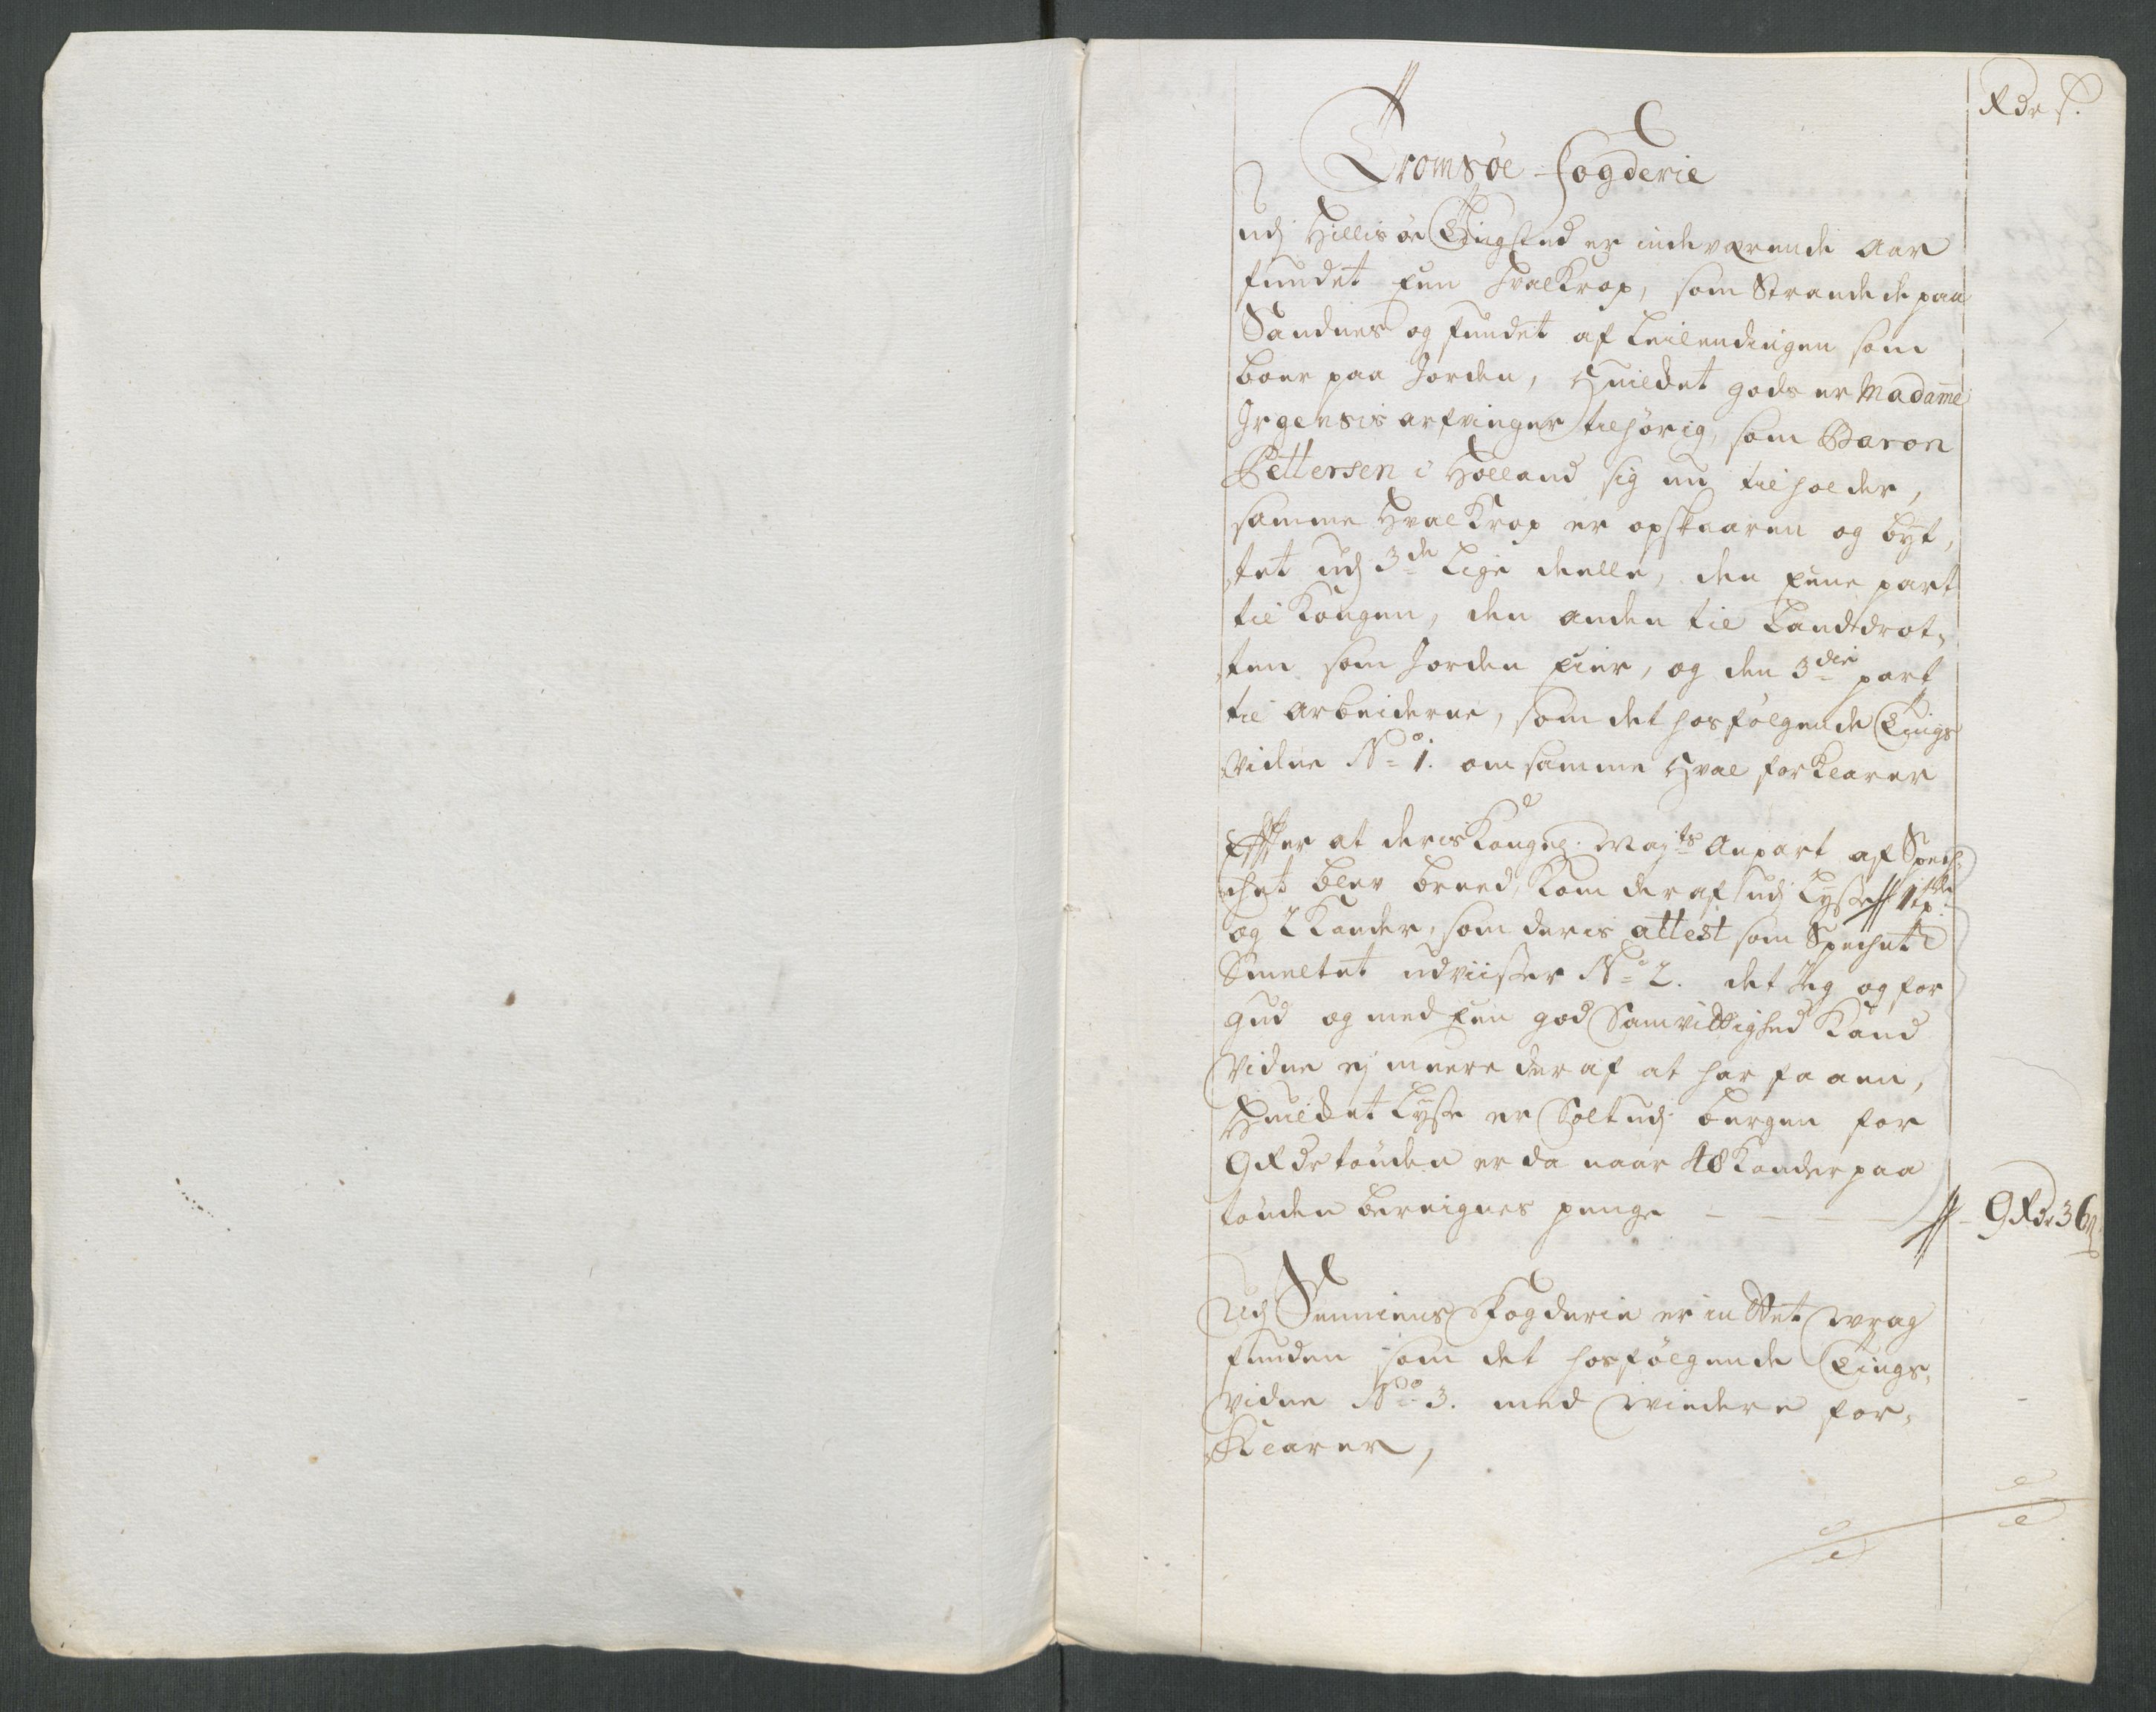 Rdr s.
Tromsøe Fogderie
udj Hillisøe Tingsted er indeværende Aar
fundet Een Hvalkrop, som Strandede paa
Sandnes og fundet af Leilendingen som
boer paa Jorden, Huilcket gods er Madame
Irgensis arfvinger tilhörig, som Baron
Pettersen i Holland sig nu tilholder,
samme Hvalkrop er opskaaren og byt,
,tet udj 3de Lige deelle, den Eene part
til Kongen, den anden til Landdrot,
,ten som Jorden Eier, og den 3die part
til Arbeiderne, som det hosfølgende Tings
vidne No 1. om samme Hval forklarer
Effter at deris Kongel. Mayts Anpart af Spech,
,chet blev brend, kom deraf udj Lysse 1 tde
og 2 Kander, som deris attest som Spechet
Smeltet udviisser No 2. det Jeg og for
Gud og med Een god Samvittighed Kand
Vidne ej meere deraf at har faaen,
Huilcket Lysse er Solt udj bergen for
9 Rdr tønden er da naar 48 Kander paa
tønden bereignes penge - - - - 9 Rdr 36 s
Udj Senniens Fogderie er inttet wrag
funden som det hosfølgende Tings,
vidne No 3. med wiedere for,
,klarer,